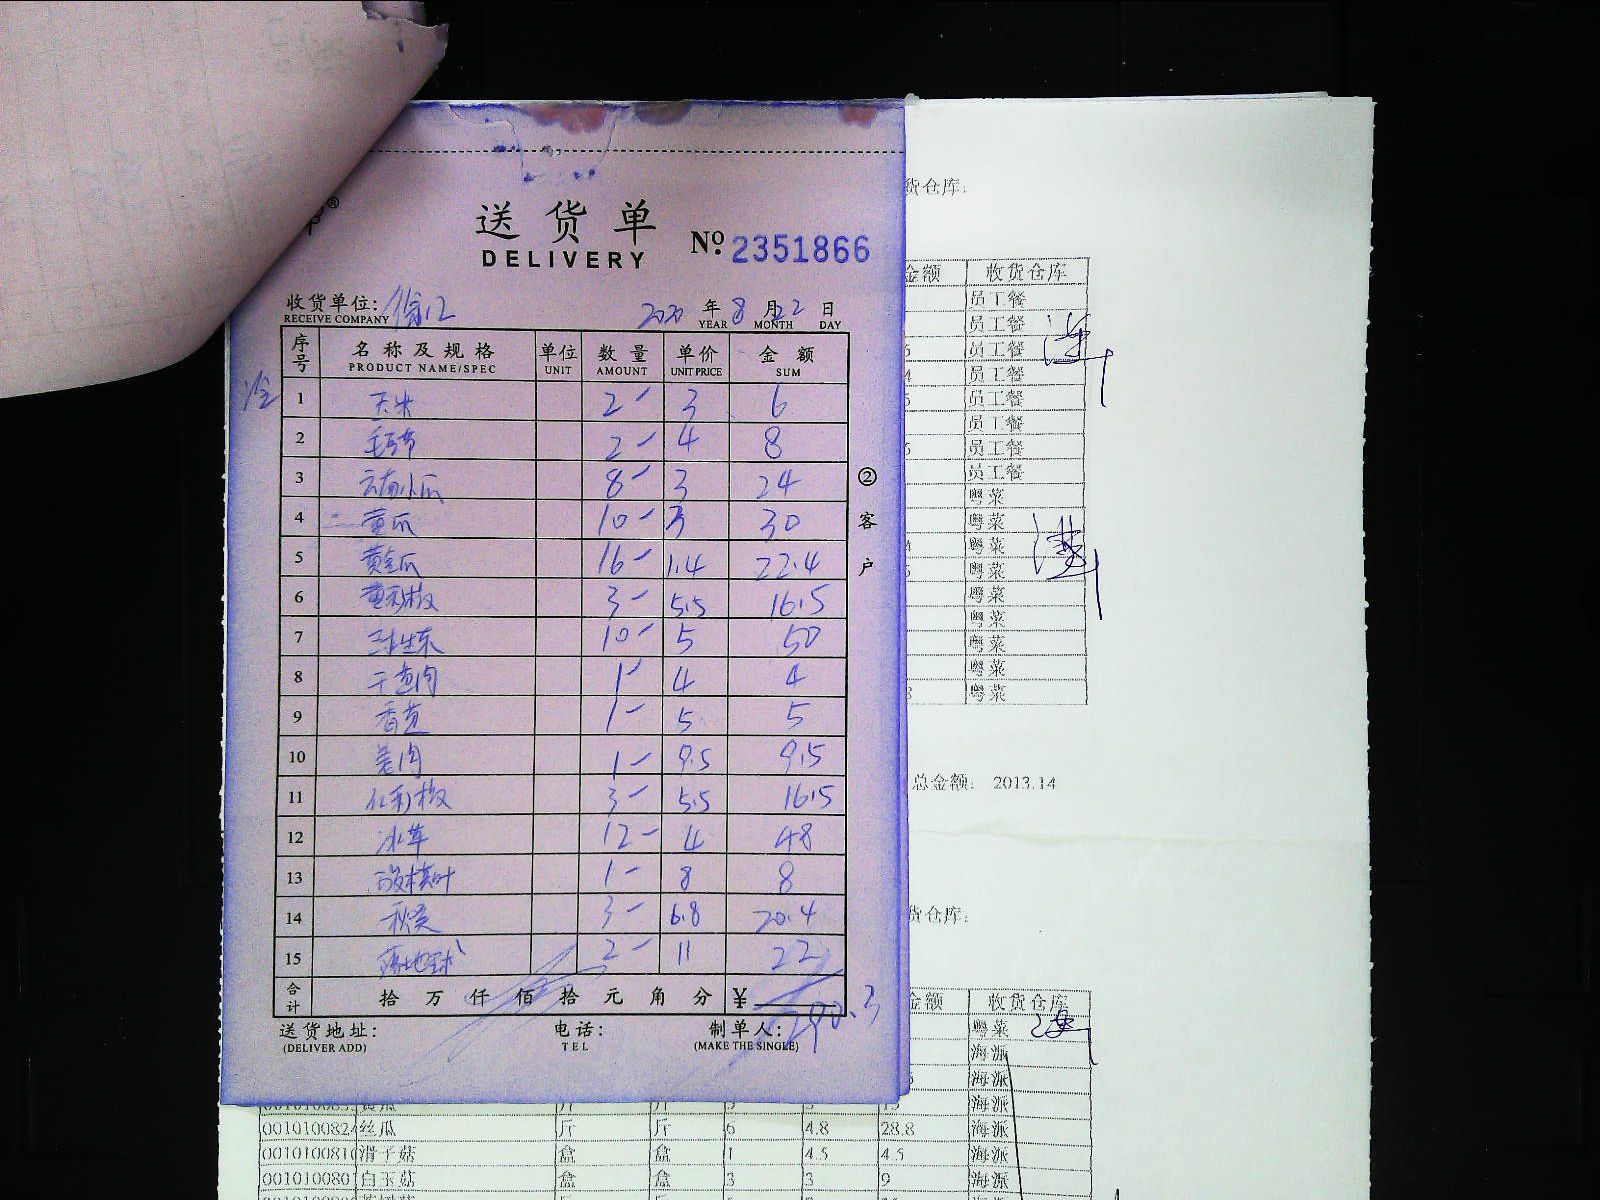 送货单
DELIVERY
№: 2351866
收货单位: 徐汇 2020 年 8 月 22 日
RECEIVE COMPANY YEAR MONTH DAY
序号 名称及规格 单位 数量 单价 金额
PRODUCT NAME/SPEC UNIT AMOUNT UNIT PRICE SUM
冷
1 玉米 2 3 6
2 毛豆节 2 4 8
3 云南小瓜 8 3 24
4 黄瓜 10 3 30
5 黄金瓜 16 1.4 22.4
6 黄彩椒 3 5.5 16.5
7 10 5 50
8 干葱肉 1 4 4
9 香葱 1 5 5
10 姜肉 1 9.5 9.5
11 红彩椒 3 5.5 16.5
12 冰草 12 4 48
13 酸模叶 1 8 8
14 秋葵 3 6.8 20.4
15 2 11 22
合计 拾 万 仟 佰 拾 元 角 分 ¥ 290.3
送货地址: 电话: 制单人:
(DELIVER ADD) TEL (MAKE THE SINGLE)
② 客户
货仓库:
金额 收货仓库
员工餐
员工餐
员工餐
员工餐
员工餐
员工餐
员工餐
员工餐
粤菜
粤菜
粤菜
粤菜
粤菜
粤菜
粤菜
粤菜
粤菜
总金额: 2013.14
货仓库:
金额 收货仓库
粤菜
海派
海派
海派
001010082 丝瓜 斤 斤 6 4.8 28.8 海派
001010081 滑子菇 盒 盒 1 4.5 4.5 海派
001010080 白玉菇 盒 盒 3 3 9 海派